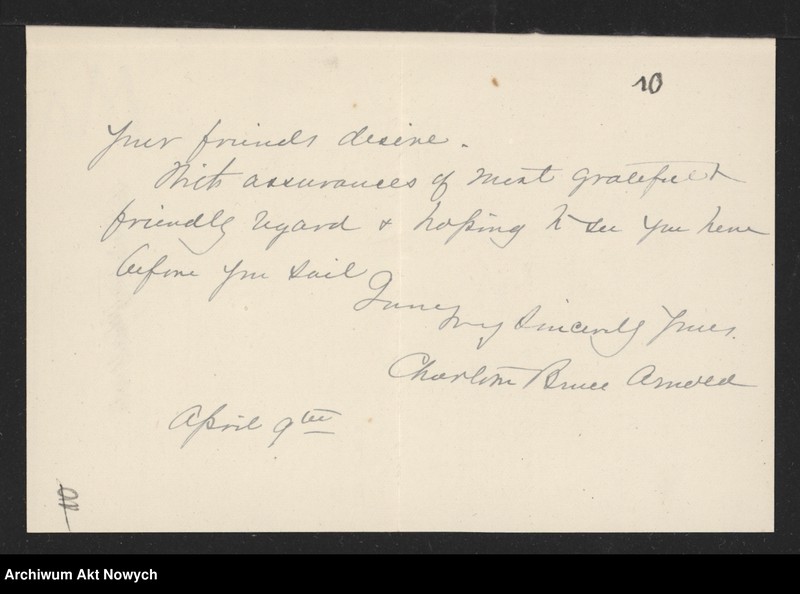 10
your friends desire.
With assurances of most grateful &
friendly regard & hoping to see you here
before you sail
I am
very sincerely yours.
Charlotte Bruce Arnold
April 9th
10
Archiwum Akt Nowych